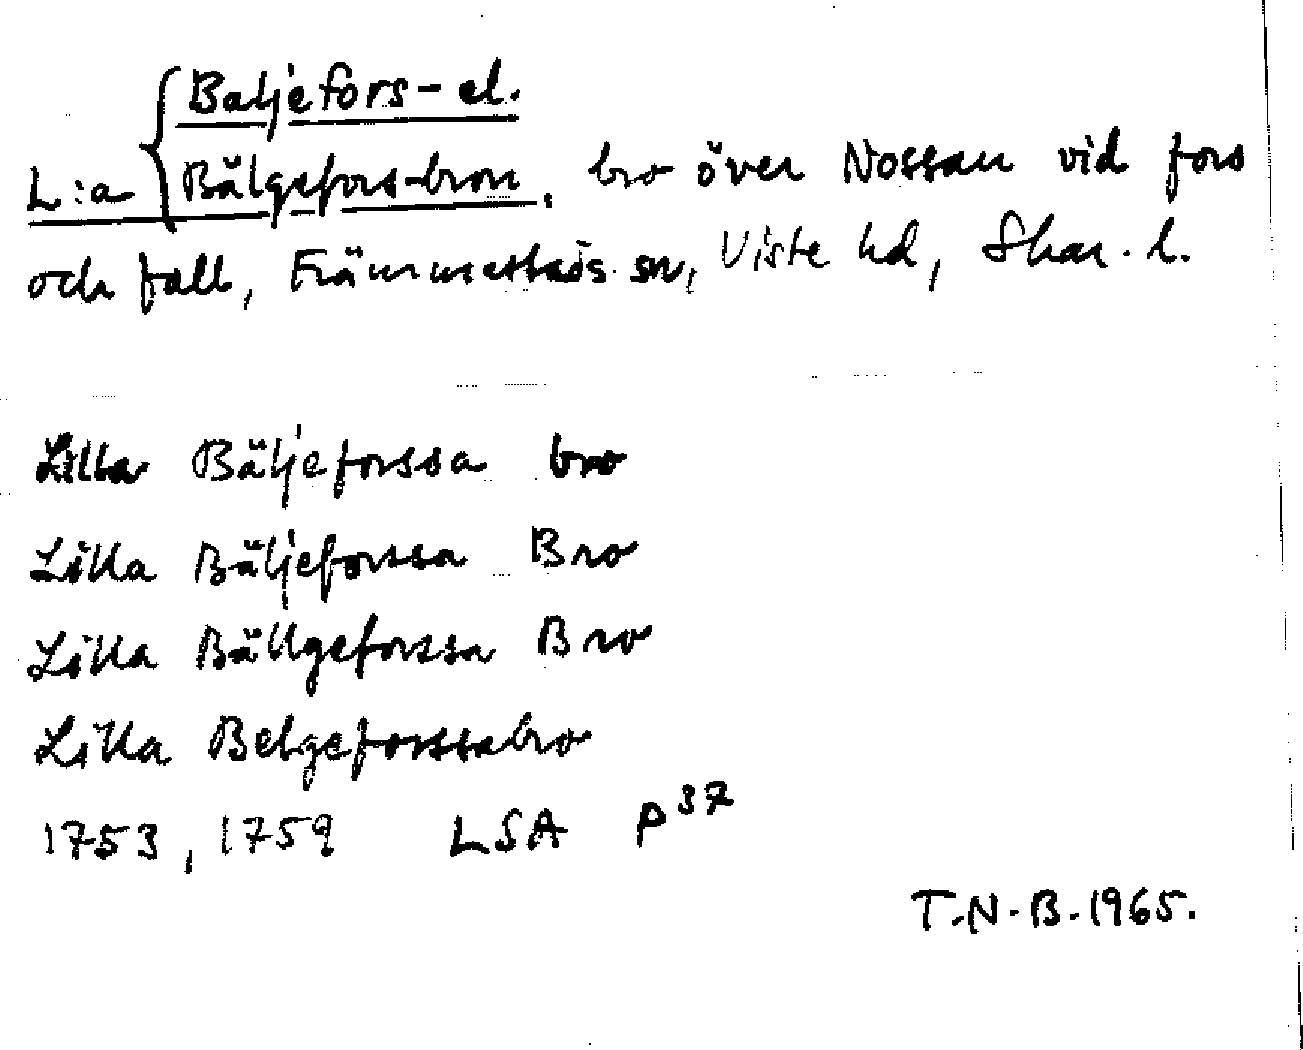 Baljefors- el.
L:a Bälgefors-bron, bro över Nossan vid fors
och fall, Främmestads sn, Viste hd, Skar. l.
Lilla Bäljeforssa bro
Lilla Bäljeforssa Bro
Lilla Bällgeforssa Bro
Lilla Belgeforssabro
1753, 1759 LSA P 37
T.N.B. 1965.